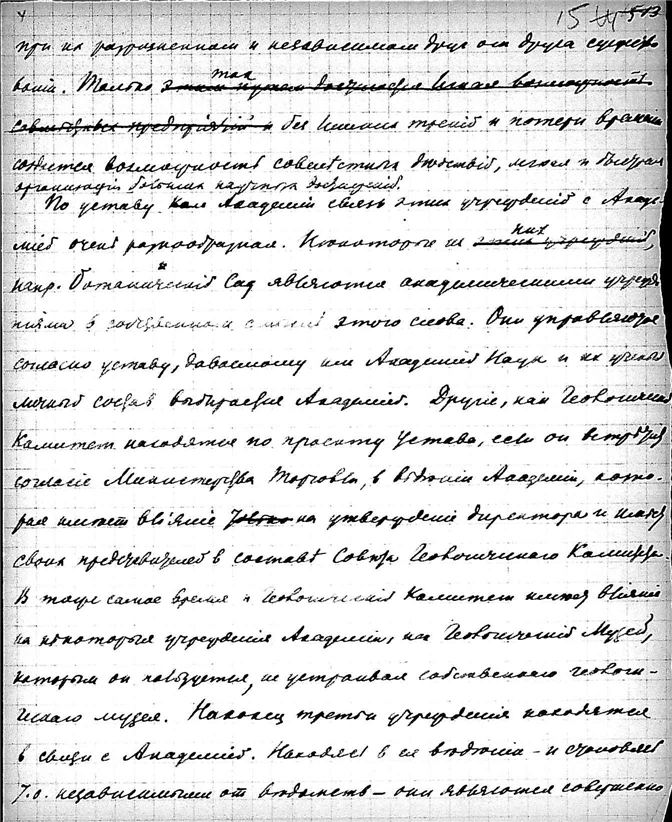 15 513
при их разрозненном и независимом друг от друга существо
вании. Только этим путем достигается так возможность
совместных предприятий и без лишних трений и потери времени
создается возможность совместных действий, легкая и быстрая
организация больших научных
По уставу Академии связь этих учреждений с Акаде-
мией очень разнообразная. Некоторые из этих учреждений них,
напр. Ботанический Сад являются академическими учрежде
ниями в собственном смысле этого слова. Они управляются
согласно уставу, даваемому им Академией Наук и их ученый
личный состав выбирается Академией. Другие, как Геологический
Комитет находятся по проекту Устава, если он встретит
согласие Министерства Торговли, в ведении Академии, кото-
рая имеет влияние только на утверждение директора и имеет
своих представителей в составе Совета Геологическаго Комитета.
В тоже самое время и Геологический Комитет имеет влияние
на некоторые учреждения Академии, как Геологический Музей,
которым он пользуется, не устраивая собственнаго геологи-
ческаго музея. Наконец третьи учреждения находятся
в связи с Академией. Находясь в ея ведении – и становясь
т.о. независимыми от ведомств – они являются совершенно